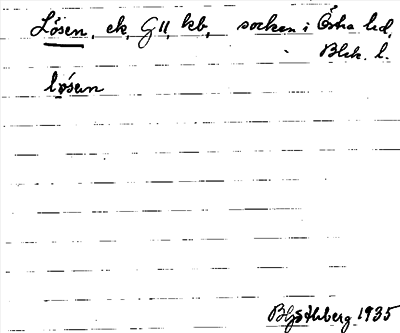 Lösen, ek, G11, kb, socken i Östra hd,
Blek. l.
lósen
Hjströmberg 1935